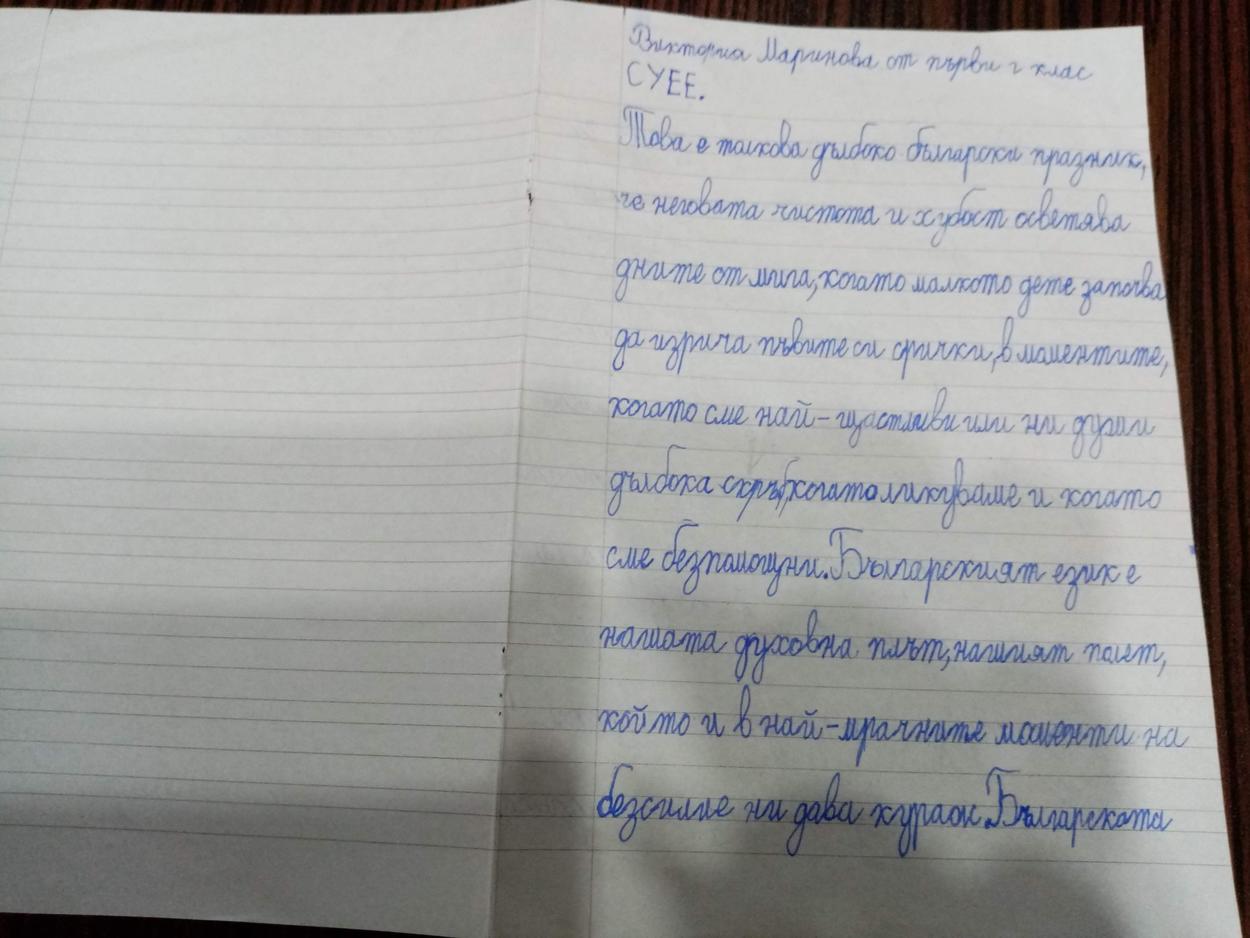 Виктория Маринова от първи г клас
СУЕЕ.
Това е такова дълбоко български празник,
че неговата чистота и хубост осветява
дните от мига, когато малкото дете започва
да изрича пъвите си срички, в моментите,
когато сме най-щастливи или ни души
дълбока скръб, когато ликуваме и когато
сме безпомощни. Българският език е
нашата духовна плът, нашият
който и в най-мрачните моменти на
безсилие ни дава кураж. Българската